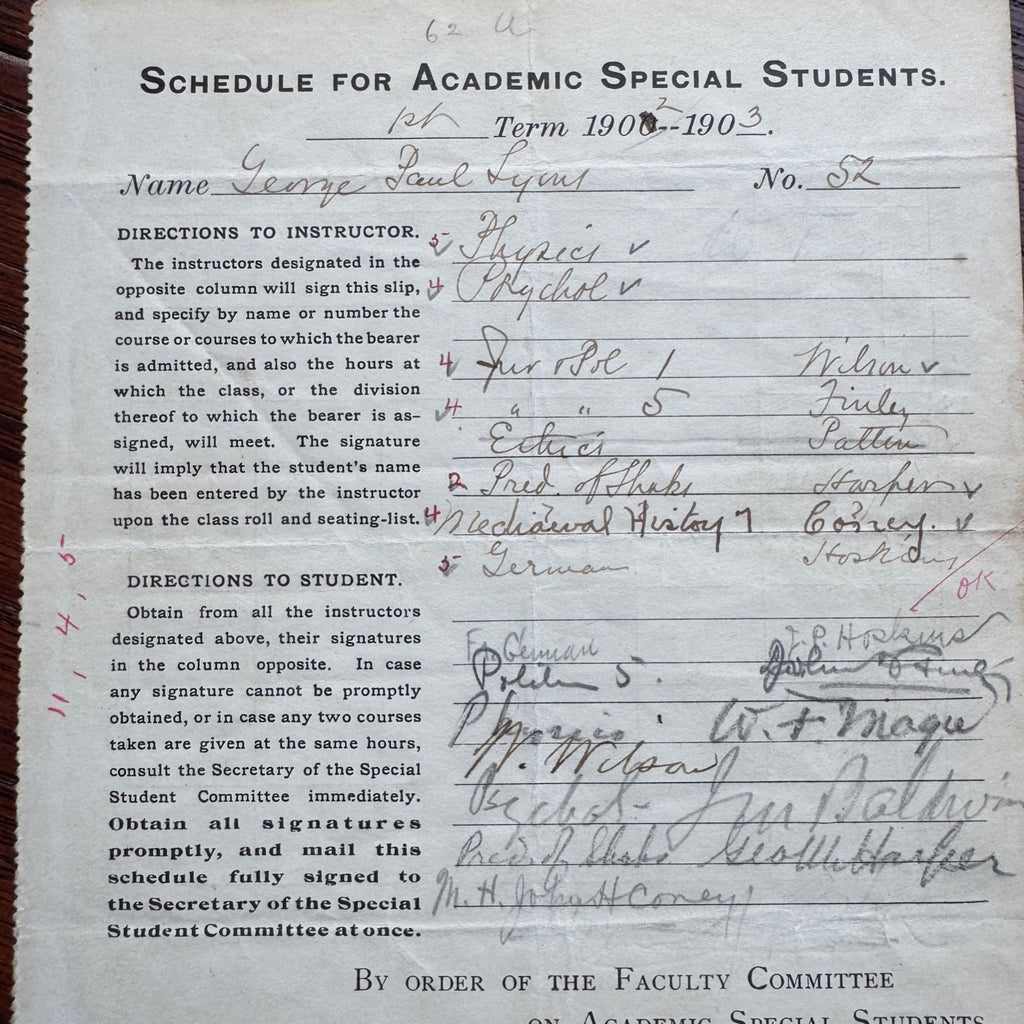 62 U
SCHEDULE FOR ACADEMIC SPECIAL STUDENTS.
1st Term 1902--1903.
Name George Paul Lyons No. 52
DIRECTIONS TO INSTRUCTOR.
The instructors designated in the
opposite column will sign this slip,
and specify by name or number the
course or courses to which the bearer
is admitted, and also the hours at
which the class, or the division
thereof to which the bearer is as-
signed, will meet. The signature
will imply that the student's name
has been entered by the instructor
upon the class roll and seating-list.
5 Physics ✓
4 Psychol ✓
4 Jur & Pol 1 Wilson ✓
4 " " 5 Finley
Ethics Patton
2 Pred. of Shaks Harper ✓
4 Mediaeval History 7 Coney. ✓
5 German Hoskins
OK
11, 4, 5
DIRECTIONS TO STUDENT.
Obtain from all the instructors
designated above, their signatures
in the column opposite. In case
any signature cannot be promptly
obtained, or in case any two courses
taken are given at the same hours,
consult the Secretary of the Special
Student Committee immediately.
Obtain all signatures
promptly, and mail this
schedule fully signed to
the Secretary of the Special
Student Committee at once.
German J. P. Hoskins
5. John Finley
Physics W. F. Magie
W. Wilson
Psychol- J M Baldwin
Pred. of Shaks Geo M Harper
M. H. John H Coney
BY ORDER OF THE FACULTY COMMITTEE
ON ACADEMIC SPECIAL STUDENTS